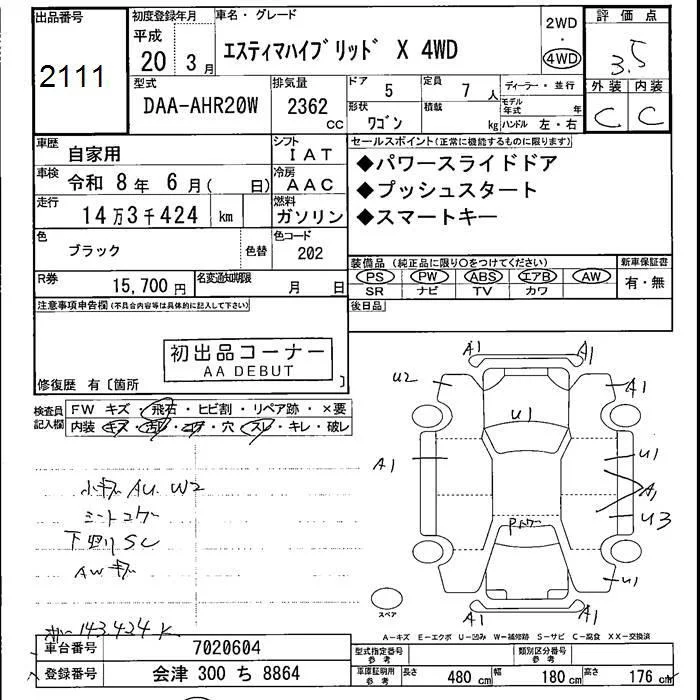 出品番号
2111
初度登録年月
平成
20 3月
車名・グレード
エスティマハイブリッド X 4WD
2WD
・
4WD
評価点
3.5
外装 内装
C C
型式
DAA-AHR20W
排気量
2362
cc
ドア
5
定員
7 人
形状
ワゴン
積載
kg
ディーラー・並行
モデル年式 年
ハンドル 左・右
車歴
自家用
シフト
IAT
車検
令和 8年 6月( 日)
冷房
AAC
走行
14万3千424 km
燃料
ガソリン
色
ブラック
色替
色コード
202
R券
15,700円
名変通知期限
月 日
セールスポイント(正常に機能するものに限ります)
◆パワースライドドア
◆プッシュスタート
◆スマートキー
装備品(純正品に限り○をつけてください)
PS PW ABS エアB AW
SR ナビ TV カワ
新車保証書
有・無
後日品
注意事項申告欄(不具合内容等は具体的に記入して下さい)
初出品コーナー
AA DEBUT
修復歴 有〔箇所 〕
検査員記入欄
FW キズ・飛石・ヒビ割・リペア跡・×要
内装・キズ・汚レ・コゲ・穴・スレ・キレ・破レ
小キズ AU W2
シートコゲ
下廻りSC
AWキズ
143,424K
A1 A1
U2 A1
U1
A1 U1
A1
U3
U1
A1 A1
スペア
A-キズ E-エクボ U-凹み W-補修跡 S-サビ C-腐食 XX-交換済
車台番号
7020604
登録番号
会津 300 ち 8864
型式指定番号
参考
類別区分番号
参考
車庫証明用
参考
長さ 480 cm 幅 180 cm 高さ 176 cm